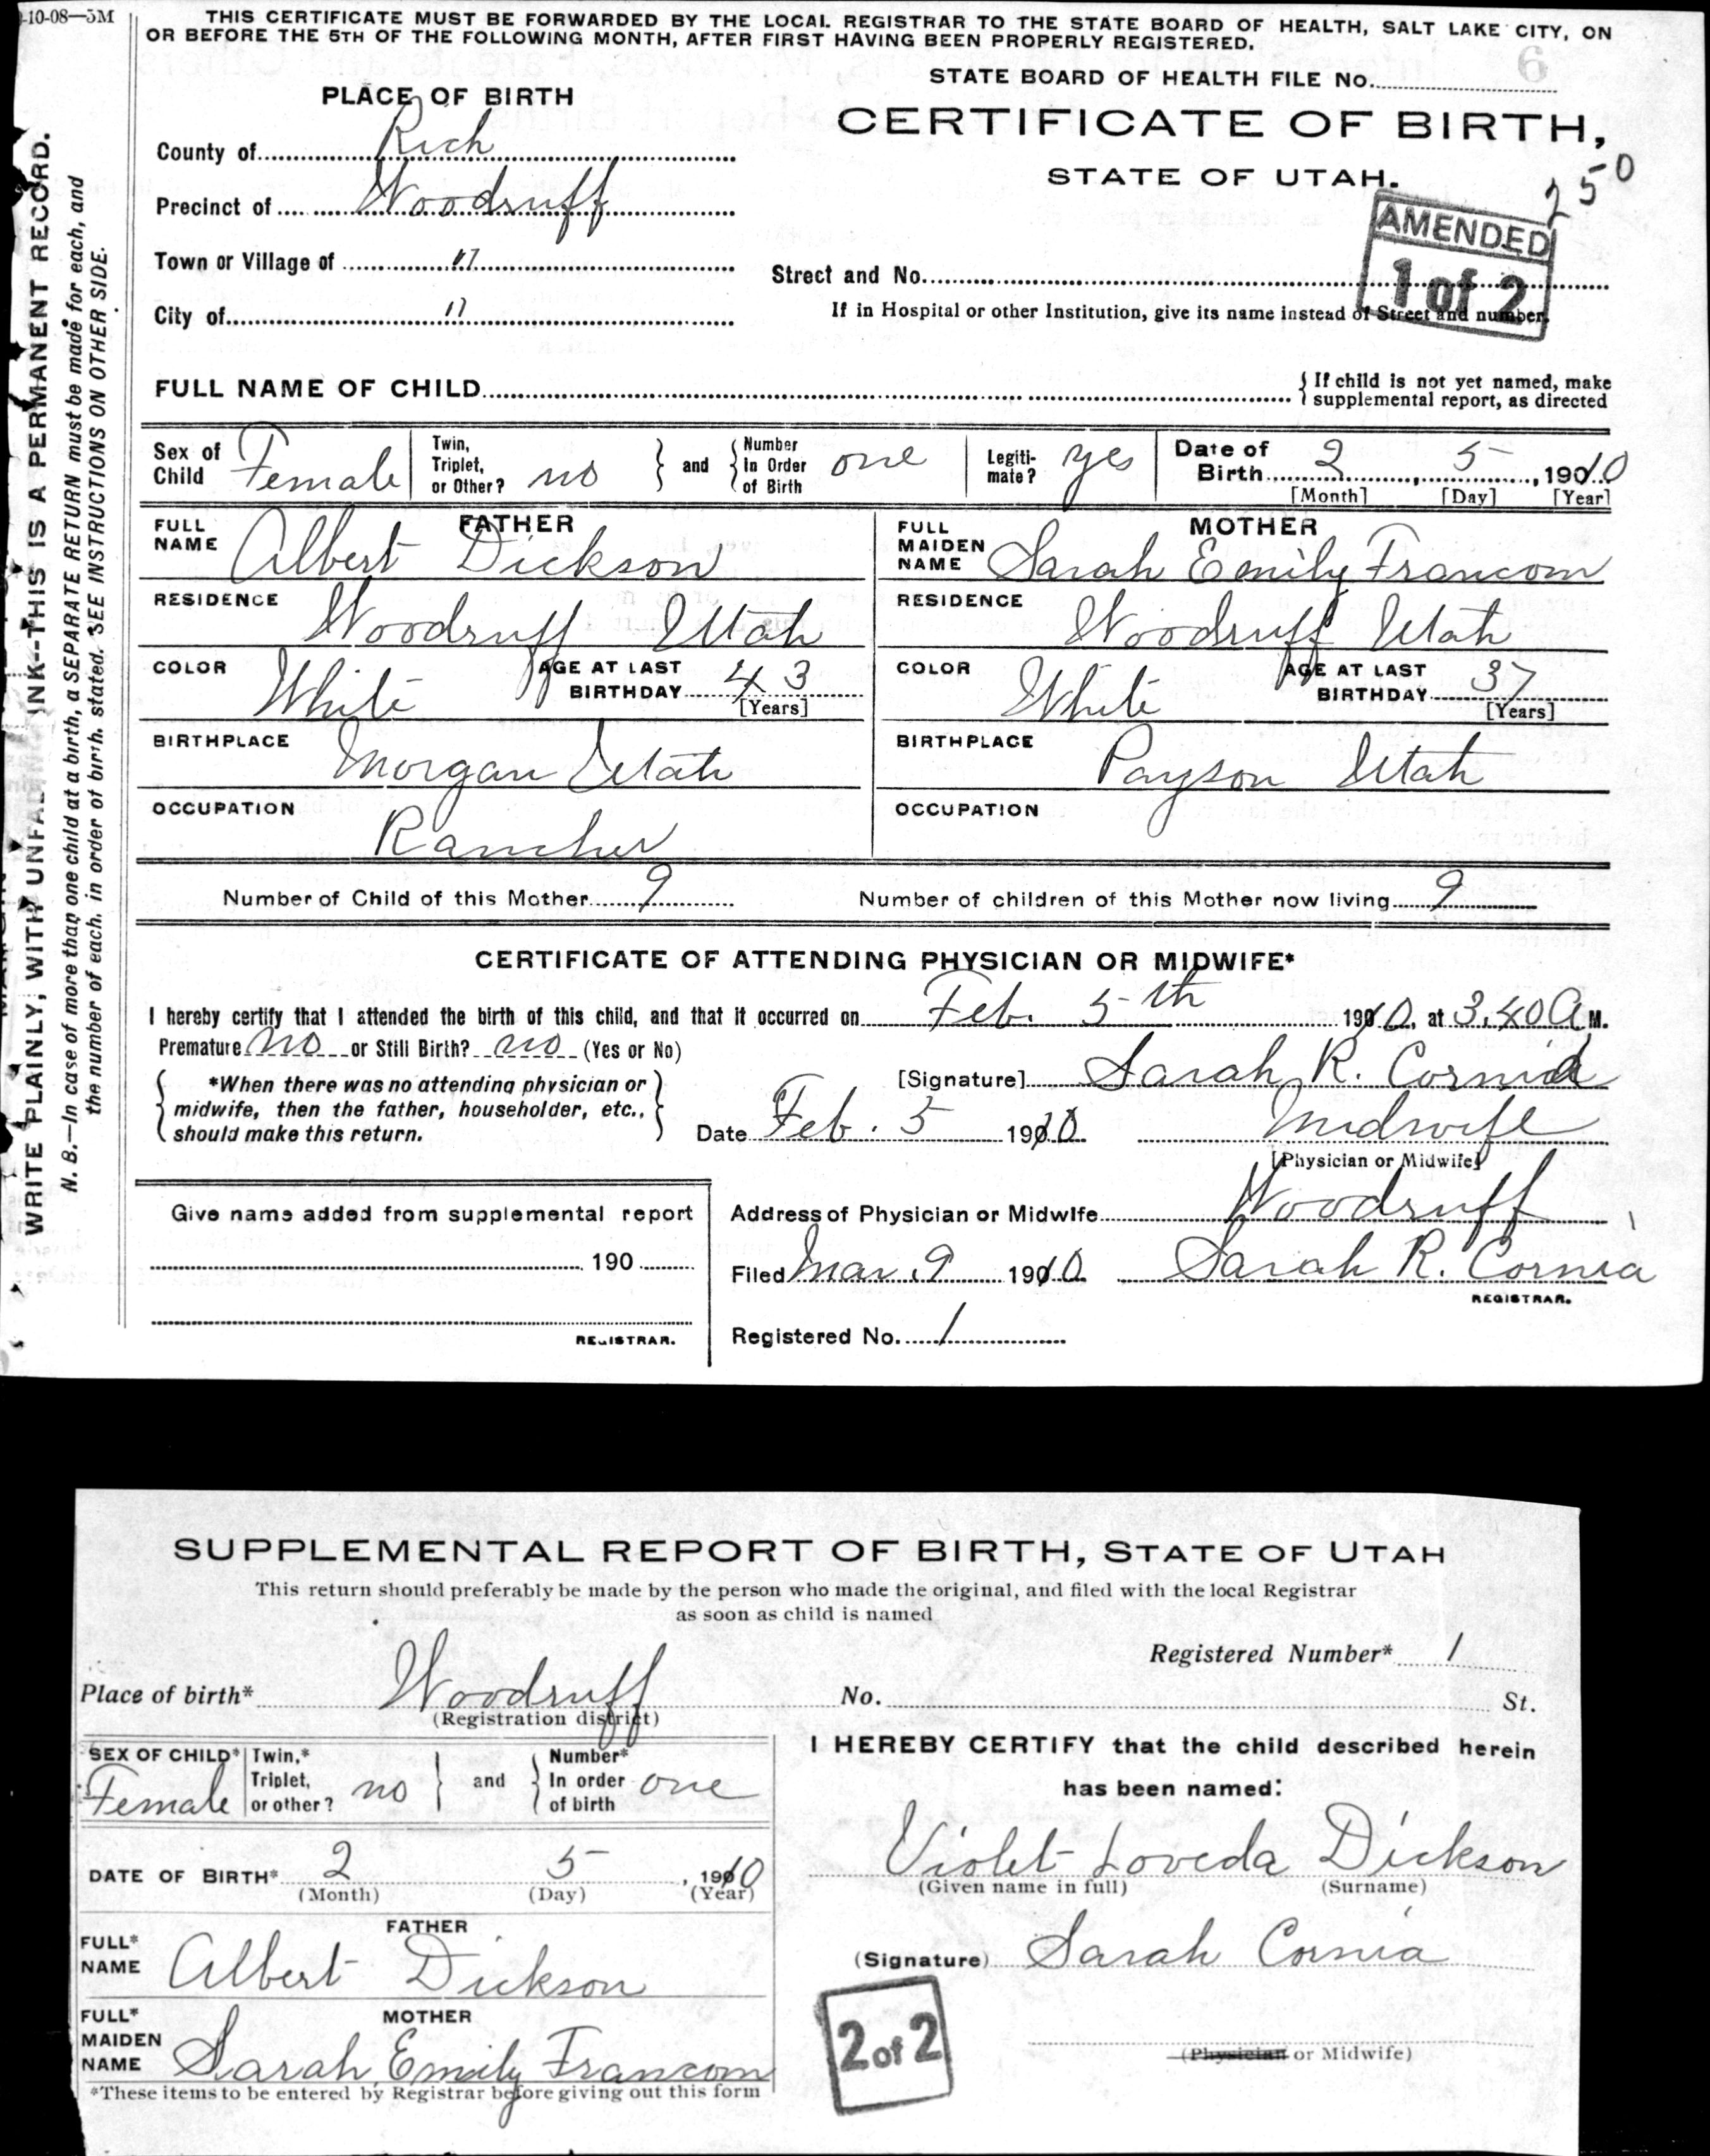 -10-08—5M
THIS CERTIFICATE MUST BE FORWARDED BY THE LOCAL REGISTRAR TO THE STATE BOARD OF HEALTH, SALT LAKE CITY, ON
OR BEFORE THE 5TH OF THE FOLLOWING MONTH, AFTER FIRST HAVING BEEN PROPERLY REGISTERED.
STATE BOARD OF HEALTH FILE No. 6
PLACE OF BIRTH
CERTIFICATE OF BIRTH,
STATE OF UTAH.
250
AMENDED
1 of 2
County of Rich
Precinct of Woodruff
Town or Village of "
City of "
Street and No.
If in Hospital or other Institution, give its name instead of Street and number.
FULL NAME OF CHILD
{ If child is not yet named, make
supplemental report, as directed
Sex of Child Female
Twin, Triplet, or Other? no } and { Number In Order of Birth one
Legiti-mate? yes
Date of Birth 2, 5, 1910
[Month] [Day] [Year]
FATHER
FULL NAME Albert Dickson
RESIDENCE Woodruff Utah
COLOR White AGE AT LAST BIRTHDAY 43
[Years]
BIRTHPLACE Morgan Utah
OCCUPATION Rancher
MOTHER
FULL MAIDEN NAME Sarah Emily Francom
RESIDENCE Woodruff Utah
COLOR White AGE AT LAST BIRTHDAY 37
[Years]
BIRTHPLACE Payson Utah
OCCUPATION
Number of Child of this Mother 9 Number of children of this Mother now living 9
CERTIFICATE OF ATTENDING PHYSICIAN OR MIDWIFE*
I hereby certify that I attended the birth of this child, and that it occurred on Feb. 5th 1910, at 3.40 A M.
Premature no or Still Birth? no (Yes or No)
{ *When there was no attending physician or
midwife, then the father, householder, etc.,
should make this return. }
[Signature] Sarah R. Cornia
Date Feb. 5 1910 Midwife
[Physician or Midwife]
Give name added from supplemental report
190
REGISTRAR.
Address of Physician or Midwife Woodruff
Filed Mar. 9 1910 Sarah R. Cornia
REGISTRAR.
Registered No. 1
WRITE PLAINLY, WITH UNFADING INK--THIS IS A PERMANENT RECORD.
N. B.—In case of more than one child at a birth, a SEPARATE RETURN must be made for each, and
the number of each, in order of birth, stated. SEE INSTRUCTIONS ON OTHER SIDE.
SUPPLEMENTAL REPORT OF BIRTH, STATE OF UTAH
This return should preferably be made by the person who made the original, and filed with the local Registrar
as soon as child is named
Registered Number* 1
Place of birth* Woodruff No. St.
(Registration district)
SEX OF CHILD* Female
Twin,* Triplet, or other? no } and { Number* In order of birth one
DATE OF BIRTH* 2 5, 1910
(Month) (Day) (Year)
FATHER
FULL* NAME Albert Dickson
MOTHER
FULL* MAIDEN NAME Sarah Emily Francom
*These items to be entered by Registrar before giving out this form
I HEREBY CERTIFY that the child described herein
has been named:
Violet Loveda Dickson
(Given name in full) (Surname)
(Signature) Sarah Cornia
(Physician or Midwife)
2 of 2